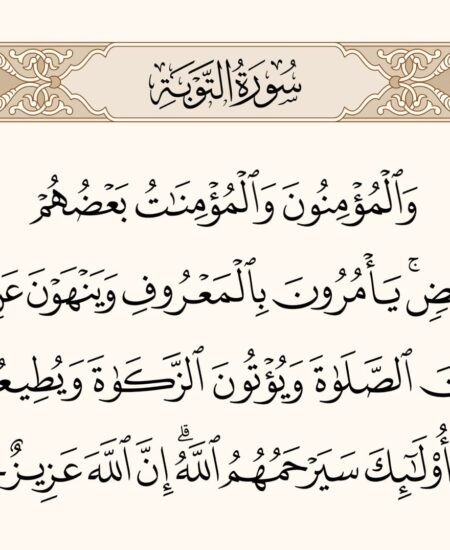 سُورَةُ التَّوْبَةِ
وَٱلْمُؤْمِنُونَ وَٱلْمُؤْمِنَٰتُ بَعْضُهُمْ
يَأْمُرُونَ بِٱلْمَعْرُوفِ وَيَنْهَوْنَ
ٱلصَّلَوٰةَ وَيُؤْتُونَ ٱلزَّكَوٰةَ
أُو۟لَٰٓئِكَ سَيَرْحَمُهُمُ ٱللَّهُ ۗ إِنَّ ٱللَّهَ عَزِيزٌ